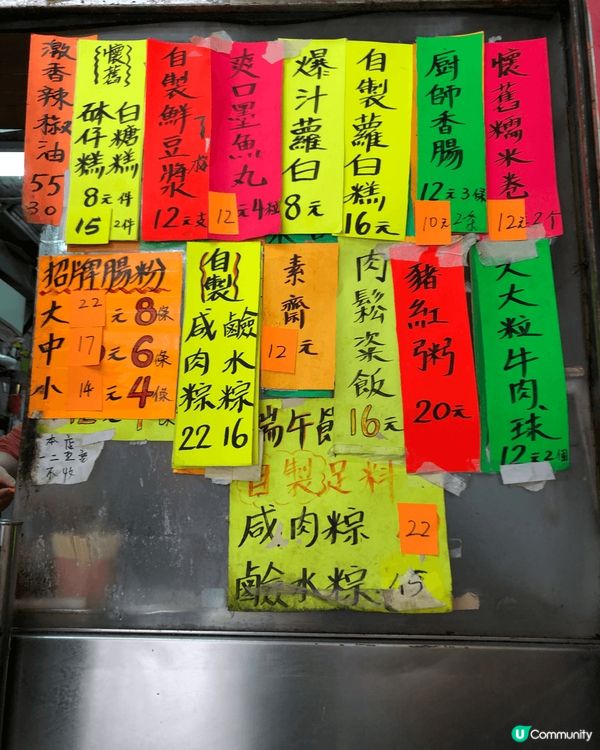 激香辣椒油
55
30
懷舊
白糖糕
砵仔糕
8元件
15 2件
自製鮮豆漿
12元支
爽口墨魚丸
12元4粒
爆汁蘿白
8元
自製蘿白糕
16元
廚師香腸
12元3條
10元2条
懷舊糯米卷
12元2个
招牌腸粉
大 22元 8條
中 17元 6條
小 14元 4條
自製
鹼水粽
咸肉粽
22 16
素齋
12元
肉鬆粢飯
16元
豬紅粥
20元
大大粒牛肉球
12元2個
本店
一二五毫
不收
端午
自製足料
咸肉粽 22
鹼水粽 15
U Community